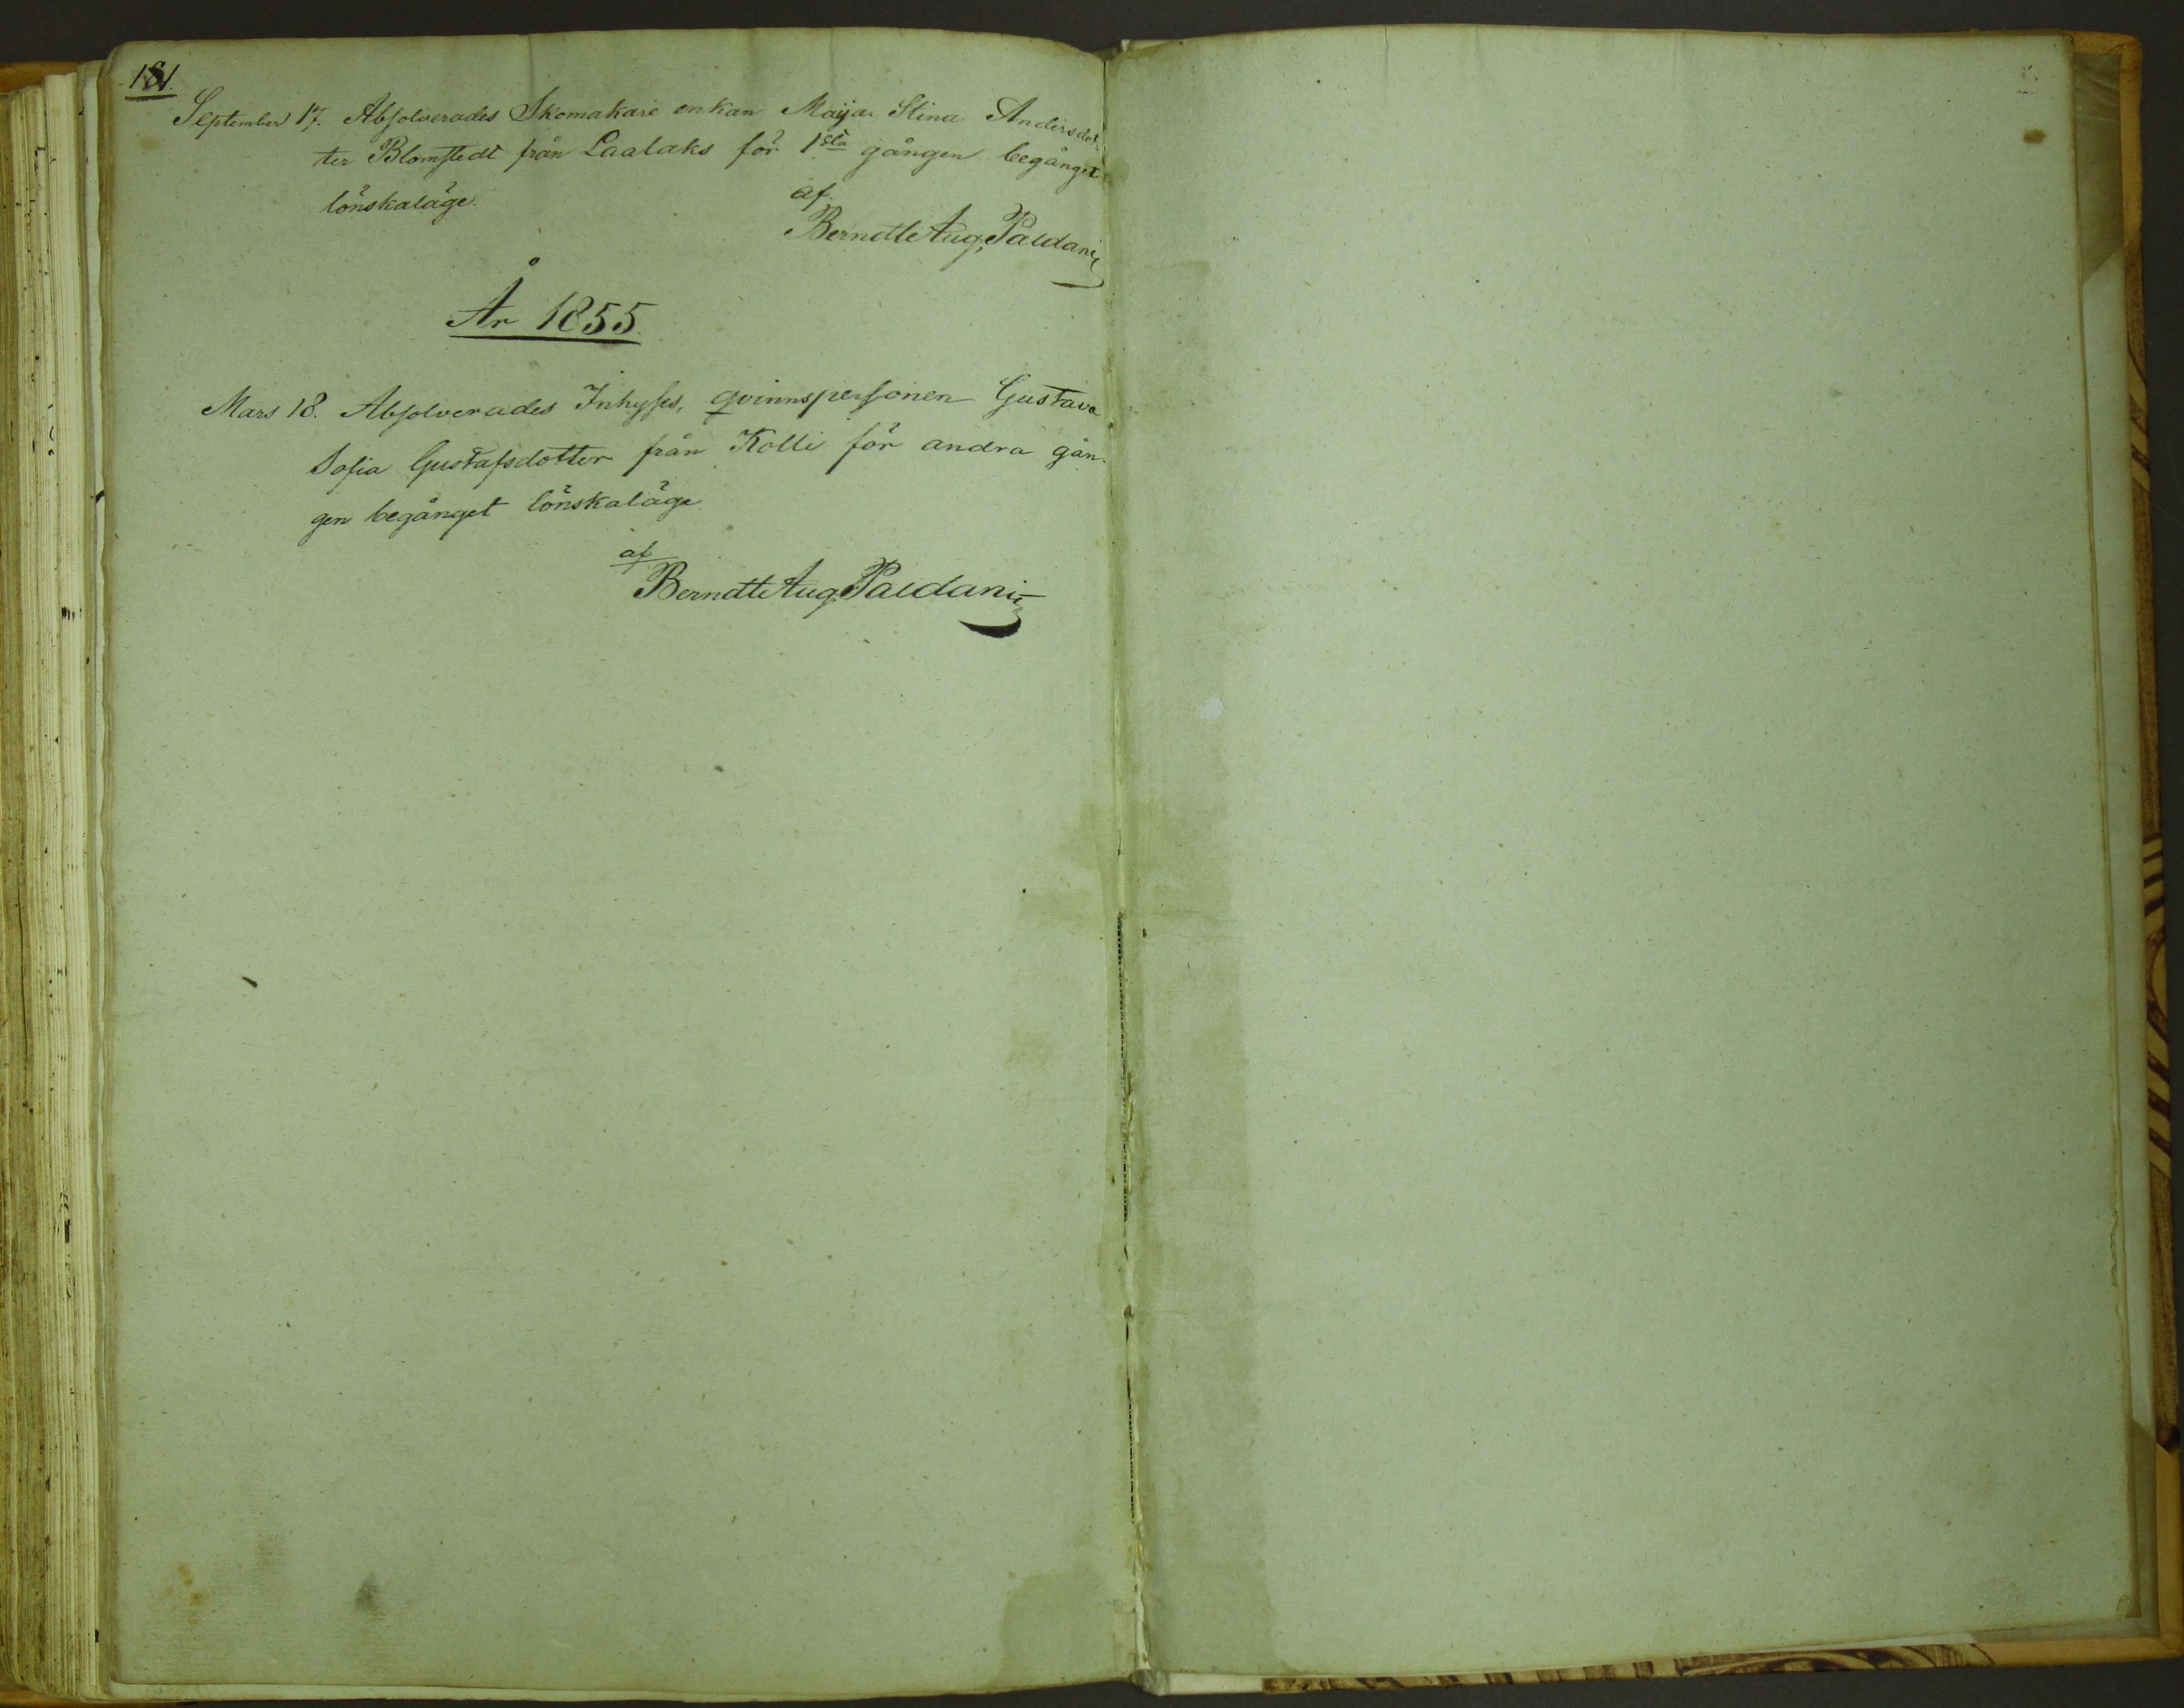 181.
September 17. Absolverades Skomakare enkan Maija Stina Andersdot-
ter Blomstedt från Laalaks för 1sta gången begånget
lönskaläge.
af.
Berndt Aug. Paldani
År 1855.
Mars 18. Absolverades Inhyses, qvinnspersonen Gustava
Sofia Gustafsdotter från Kolli för andra gån-
gen begånget lönskaläge
af
Berndt Aug. Paldani